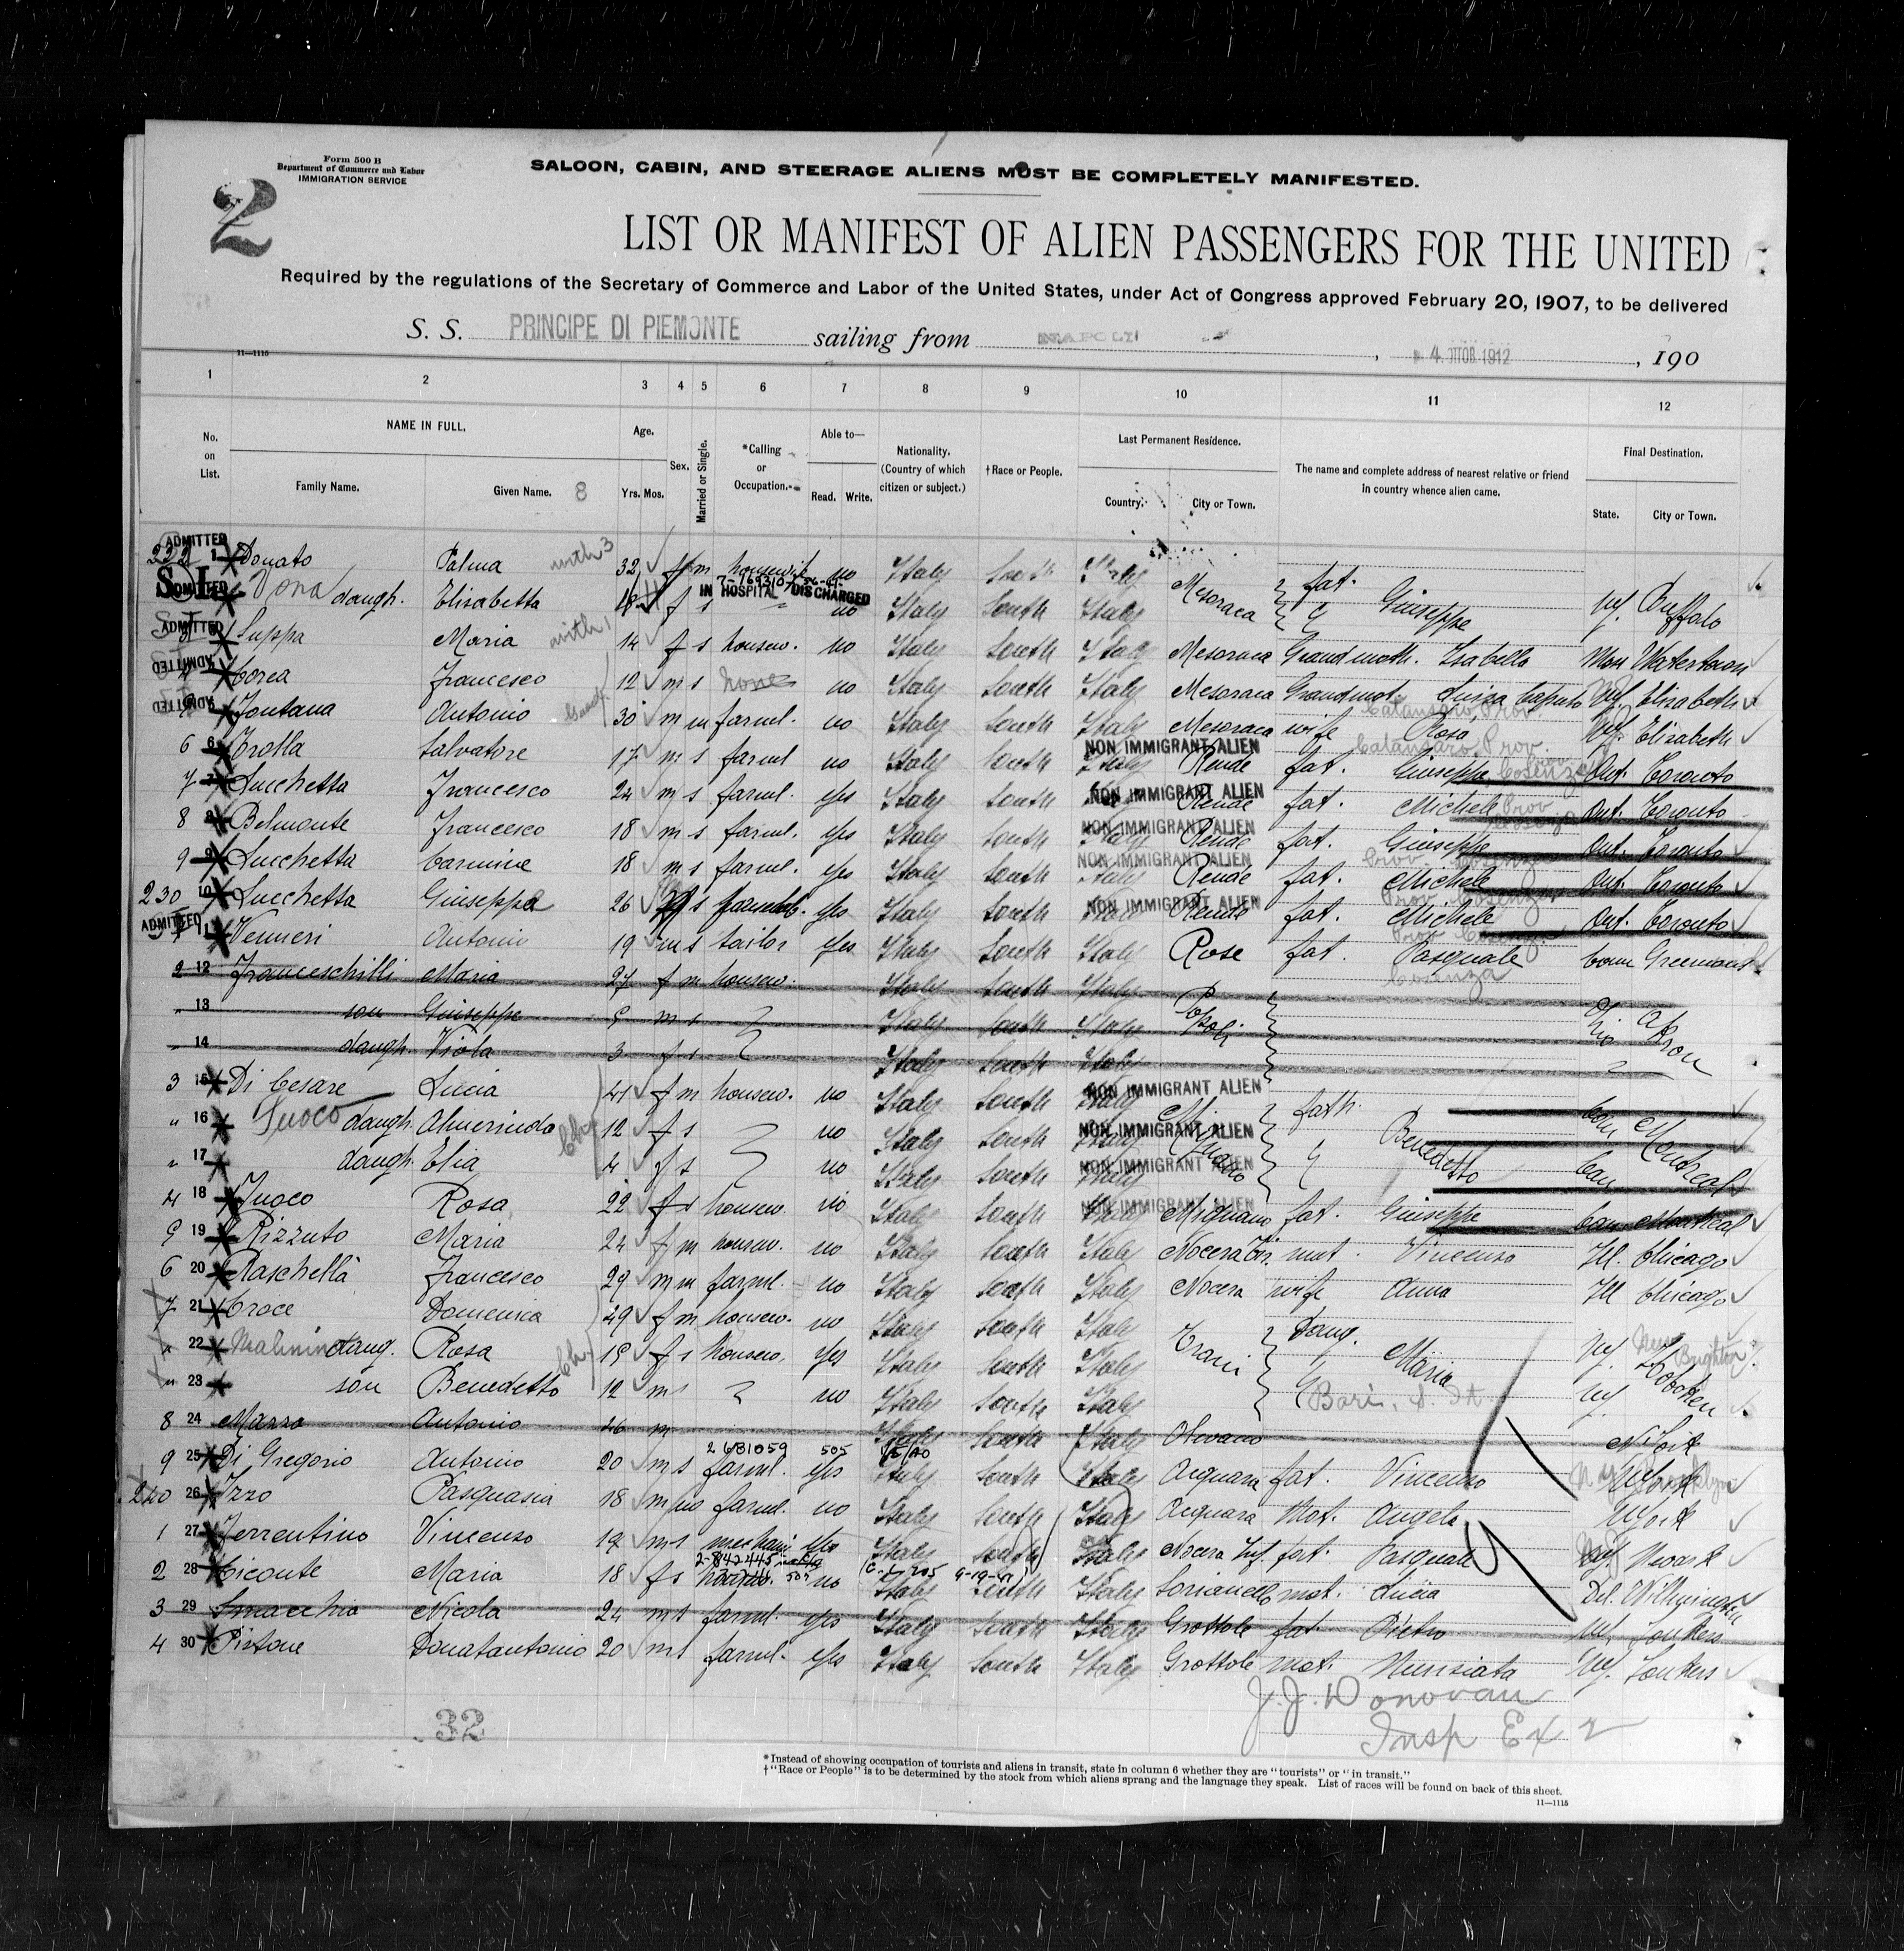 Form 500 B
Department of Commerce and Labor
IMMIGRATION SERVICE
2
SALOON, CABIN, AND STEERAGE ALIENS MUST BE COMPLETELY MANIFESTED.
LIST OR MANIFEST OF ALIEN PASSENGERS FOR THE UNITED
Required by the regulations of the Secretary of Commerce and Labor of the United States, under Act of Congress approved February 20, 1907, to be delivered
S. S. PRINCIPE DI PIEMONTE sailing from NAPOLI, 4. OTTOB 1912, 190
11—1115
1 2 3 4 5 6 7 8 9 10 11 12
No. on List. NAME IN FULL. Family Name. Given Name. 8 Age. Yrs. Mos. Sex. Married or Single. *Calling or Occupation. Able to— Read. Write. Nationality. (Country of which citizen or subject.) †Race or People. Last Permanent Residence. Country. City or Town. The name and complete address of nearest relative or friend in country whence alien came. Final Destination. State. City or Town.
ADMITTED 222 1 Donato Palma with 3 32 f m housewife no Italy South Italy Mesoraca fat. Giuseppe NY. Buffalo
ADMITTED Vona daugh. Elisabetta f s IN HOSPITAL DISCHARGED no Italy South Italy
ADMITTED Luppa Maria with 1 14 f s housew. no Italy South Italy Mesoraca Grandmoth. Isabella Watertown
ADMITTED Corea Francesco 12 m s none no Italy South Italy Mesoraca Grandmot. Luisa Caputo Elizabeth
ADMITTED Fontana Antonio 30 m m farml. no Italy South Italy Mesoraca wife Rosa Catanzaro Prov. Elizabeth
6 6 Trolla Salvatore 17 m s farml no Italy South Italy NON IMMIGRANT ALIEN Rende fat. Giuseppe Cosenza Ont. Toronto
7 7 Lucchetta Francesco 24 m s farml. yes Italy South NON IMMIGRANT ALIEN Rende fat. Michele Ont. Toronto
8 8 Belmonte Francesco 18 m s farml. yes Italy South Italy NON IMMIGRANT ALIEN Rende fat. Giuseppe Ont. Toronto
9 9 Lucchetta Carmine 18 m s farml. yes Italy South Italy NON IMMIGRANT ALIEN Rende fat. Michele Ont. Toronto
230 10 Lucchetta Giuseppe 26 s yes Italy South NON IMMIGRANT ALIEN Rende fat. Michele Ont. Toronto
ADMITTED 11 Venneri Antonio 19 m s tailor yes Italy South Italy Rose fat. Pasquale Cosenza Conn
2 12 Franceschilli Maria 27 f m housew. Italy South Italy Ohio Akron
" 13 son Giuseppe 5 m s Italy South Italy
" 14 daugh. Viola 3 f s Italy South Italy
3 15 Di Cesare Lucia 41 f m housew. no Italy South Italy NON IMMIGRANT ALIEN Mignano fath. Benedetto Can Montreal
" 16 Fuoco daugh. Almerinda 12 f s no Italy South NON IMMIGRANT ALIEN
" 17 daugh. Elia 4 f s no Italy South NON IMMIGRANT ALIEN Can
4 18 Fuoco Rosa 22 f s housew. no Italy South Italy NON IMMIGRANT ALIEN Mignano fat. Giuseppe Can Montreal
5 19 Rizzuto Maria 24 f m housew. no Italy South Italy Nocera Tir. mot. Vincenza Ill. Chicago
6 20 Raschella Francesco 29 m m farml. no Italy South Italy Nocera wife Anna Ill Chicago
7 21 Croce Domenica 49 f m housew. no Italy South Italy Trani Daug. Maria NY. Hoboken
" 22 daug. Rosa 15 f s housew. yes Italy South Italy New Brighton
" 23 son Benedetto 12 m s no Italy South Italy Bari, S. It. NY
8 24 Mazza Antonio 46 m Italy South Italy Olevano NYork
9 25 Di Gregorio Antonio 20 m s 2 681059 505 farml. yes Italy South Italy Acquara fat. Vincenzo NYork
240 26 Izzo Pasquasia 18 farml. no Italy South Italy Acquara Mot. Angela NYork
1 27 Ferrentino Vincenzo 19 m s mechanic yes Italy South Italy Nocera Inf. fat. Pasquale Newark
2 28 Ciconte Maria 18 f s 2-842445 505 no Italy South Italy Sorianello mot. Lucia Del. Wilmington
3 29 Smacchia Nicola 24 m s farml. yes Italy South Italy Grottole fat. Pietro NY. Yonkers
4 30 Pistone Donatantonio 20 m s farml. yes Italy South Italy Grottole mot. Nunziata NY. Yonkers
J. J. Donovan
Insp Ex
32
*Instead of showing occupation of tourists and aliens in transit, state in column 6 whether they are "tourists" or "in transit."
†"Race or People" is to be determined by the stock from which aliens sprang and the language they speak. List of races will be found on back of this sheet.
11—1115